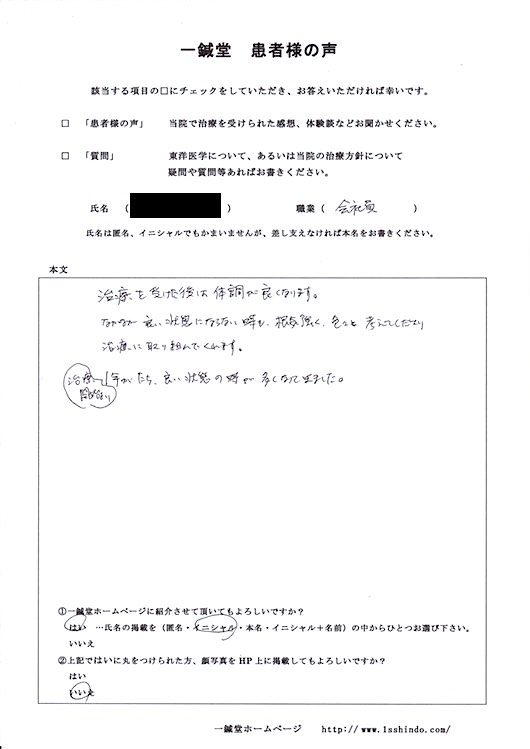 一鍼堂 患者様の声
該当する項目の□にチェックをしていただき、お答えいただければ幸いです。
□ 「患者様の声」 当院で治療を受けられた感想、体験談などお聞かせください。
□ 「質問」 東洋医学について、あるいは当院の治療方針について
疑問や質問等あればお書きください。
氏名 ( ) 職業 ( 会社員 )
氏名は匿名、イニシャルでもかまいませんが、差し支えなければ本名をお書きください。
本文
治療を受けた後は体調が良くなります。
なかなか良い状態にならない時も、根気強く、色々と考えてくださり
治療に取り組んでくれます。
治療開始より
1年がたち、良い状態の時が多くなって来ました。
①一鍼堂ホームページに紹介させて頂いてもよろしいですか?
はい …氏名の掲載を(匿名・イニシャル・本名・イニシャル+名前)の中からひとつお選び下さい。
いいえ
②上記ではいに丸をつけられた方、顔写真をHP上に掲載してもよろしいですか?
はい
いいえ
一鍼堂ホームページ http://www.1sshindo.com/